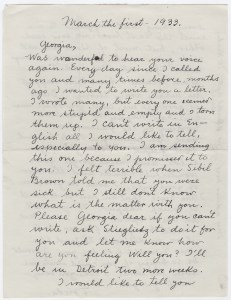 March the first - 1933.
Georgia,
Was wonderful to hear your voice
again. Every day since I called
you and many times before months
ago I wanted to write you a letter.
I wrote many, but every one seemed
more stupid and empty and I tore
them up. I can't write in En-
glish all I would like to tell,
especially to you. I am sending
this one because I promised it to
you. I felt terrible when Sibil
Brown told me that you were
sick but I still don't know
what is the matter with you.
Please Georgia dear if you can't
write, ask Stieglitz to do it for
you and let me know how
are you feeling Will you? I'll
be in Detroit two more weeks.
I would like to tell you